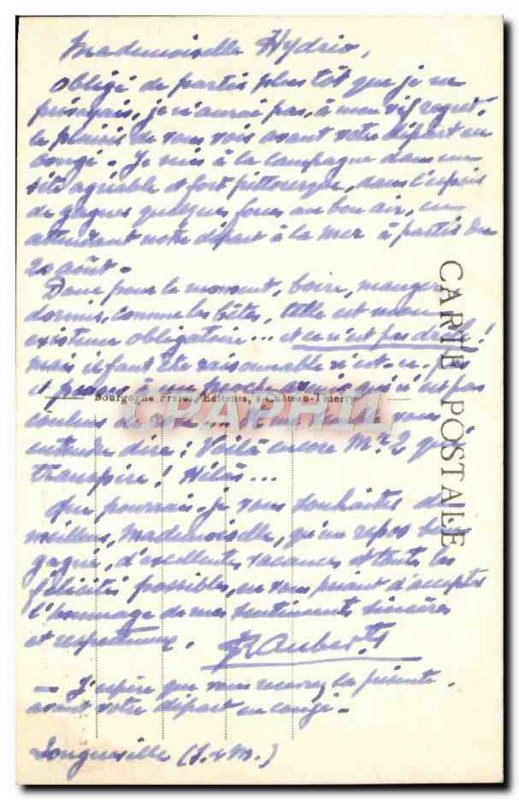 Mademoiselle Hydrio,
Obligé de partir plus tôt que je ne
pensais, je n'aurai pas, à mon vif regret,
le plaisir de vous voir avant votre départ en
congé. Je suis à la campagne dans un
site agréable et fort pittoresque, dans l'espoir
de gagner quelques forces au bon air, en
attendant notre départ à la mer à partir du
20 août.
Donc pour le moment, boire, manger
dormir, comme les bêtes, telle est mon
existence obligatoire... et ce n'est pas drôle!
mais il faut être raisonnable n'est-ce pas
et penser à un proche avenir qui n'est pas
Bourgogne Frères, Editeurs, à Château-Thierry
couleur de rose... vous
entende dire: Voilà encore Mr 2 qui
transpire! Hélas...
Que pourrais-je vous souhaiter de
meilleur, Mademoiselle, qu'un repos bien
gagné, d'excellentes vacances et toutes les
félicités possibles, en vous priant d'accepter
l'hommage de mes sentiments sincères
et respectueux. Aubert
— J'espère que vous recevrez la présente
avant votre départ en congé.
Longueville (S. & M.)
CARTE POSTALE
CPAPHIL.com